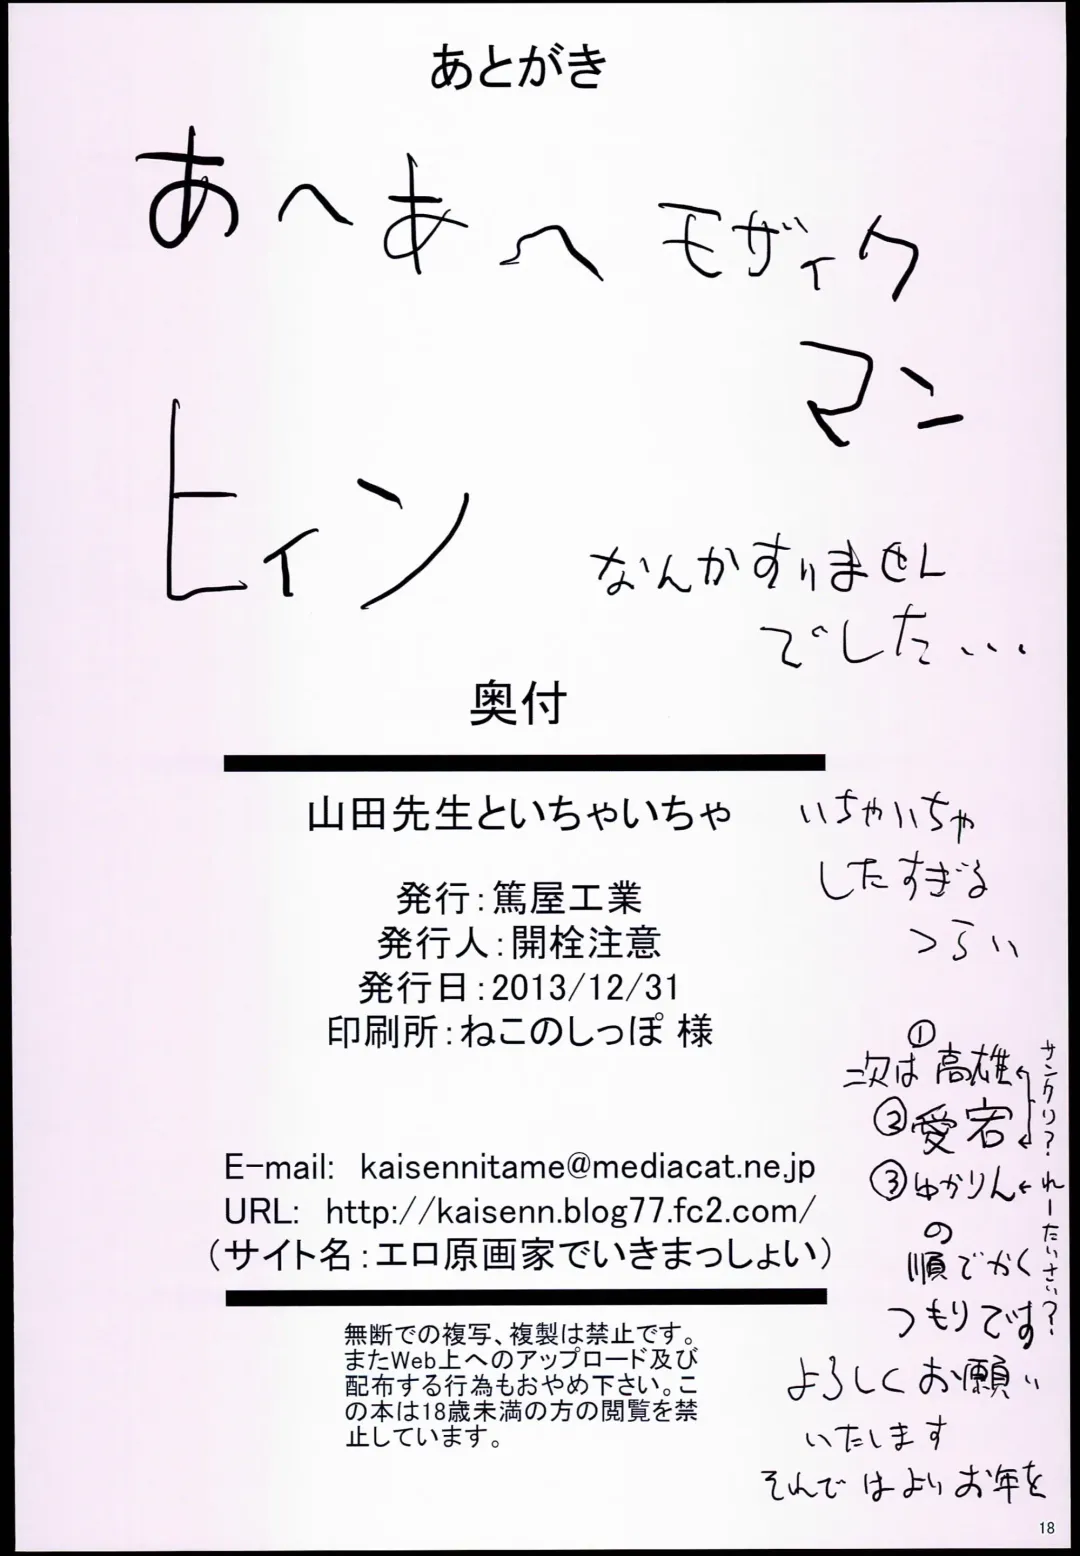 あとがき
あへあへ
モザイク
マン
ヒィン
なんかすいません
でした...
奥付
山田先生といちゃいちゃ
発行:篤屋工業
発行人:開栓注意
発行日:2013/12/31
印刷所:ねこのしっぽ 様
E-mail: kaisennitame@mediacat.ne.jp
URL: http://kaisenn.blog77.fc2.com/
(サイト名:エロ原画家でいきまっしょい)
無断での複写、複製は禁止です。
またWeb上へのアップロード及び
配布する行為もおやめ下さい。こ
の本は18歳未満の方の閲覧を禁
止しています。
いちゃいちゃ
したすぎる
つらい
①
次は高雄
②愛宕
サンクリ?
③ゆかりん
れーたいさい?
の
順でかく
つもりです
よろしくお願い
いたします
それではよいお年を
18